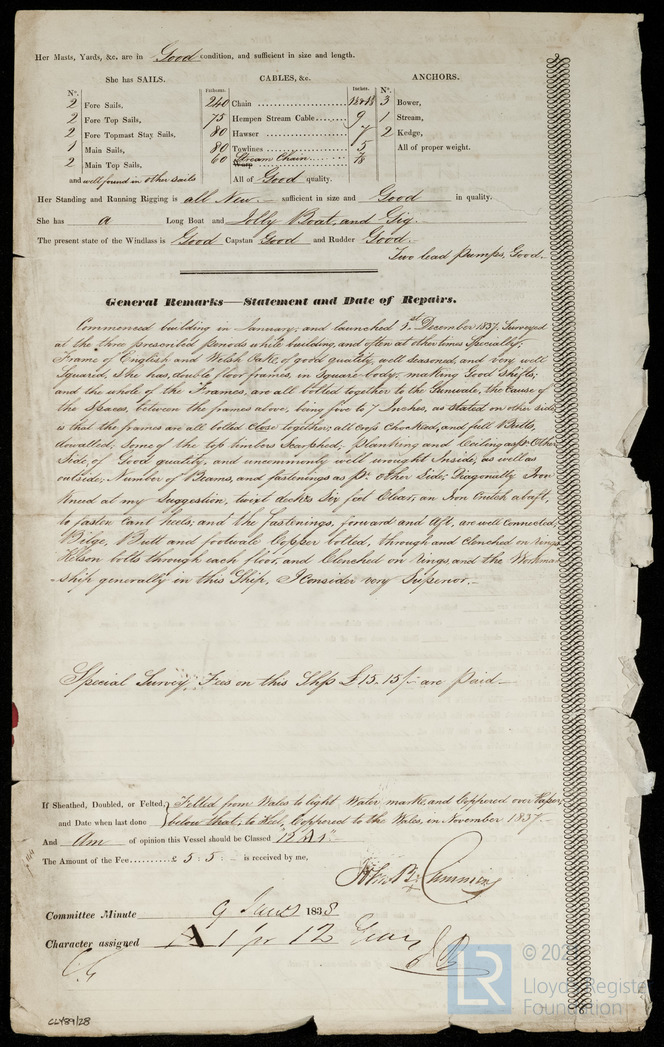 Her Masts, Yards, &c. are in Good condition, and sufficient in size and length.
She has SAILS. CABLES, &c. ANCHORS.
N°. Fathoms. Inches. N°.
2 Fore Sails, 240 Chain 3 Bower,
2 Fore Top Sails, 75 Hempen Stream Cable 9 1 Stream,
2 Fore Topmast Stay Sails, 80 Hawser 7 2 Kedge,
1 Main Sails, 80 Towlines 5 All of proper weight.
2 Main Top Sails, 60 Warp Stream Chain 7/8
and well found in other sails All of Good quality.
Her Standing and Running Rigging is all New sufficient in size and Good in quality.
She has a Long Boat and Jolly Boat, and Gig.
The present state of the Windlass is Good Capstan Good and Rudder Good.
Two lead pumps, Good.
General Remarks—Statement and Date of Repairs.
Commenced building in January, and launched 1st December 1837. Surveyed
at the three prescribed periods while building, and often at other times Specially;
Frame of English and Welsh Oak, of good quality, well seasoned, and very well
Squared, She has, double floor frames, in Square body, making Good Shifts;
and the whole of the Frames, are all bolted together to the Gunwale, the Cause of
the Spaces, between the frames above, being five to 7 Inches, as Stated on other side,
is that the frames are all bolted Close together; all Crops Chocked, and full Butts,
dowalled, Some of the top timbers Scarphed; planking and Ceiling as pr Other
Side, of Good quality, and uncommonly well wrought Inside, as well as
outside, Number of Beams, and fastenings as pr other Side; Diagonally Iron
Kneed at my Suggestion, twixt decks Six feet Clear, an Iron Crutch abaft,
to fasten Cant heels; and the fastenings, forward and Aft, are well Connected,
Bilge, Butt and footwale Copper bolted, through and Clenched on rings,
Kelson bolts through each floor, and Clenched on Rings, and the Workman
-ship generally in this Ship, I Consider very Superior.
Special Survey Fees on this Ship £15.15/- are paid
If Sheathed, Doubled, or Felted, Felted from Wales to light Water mark, and Coppered over
and Date when last done below that, to Keel, Coppered to the Wales, in November 1837
And Am of opinion this Vessel should be Classed "12 A1"
The Amount of the Fee £ 5 : 5 : - is received by me,
Jno B. Cumming
Committee Minute 9 Jany 1838
Character assigned A 1 for 12 Years
CLY89/28
LR
© 202
Lloyd's Register
Foundation